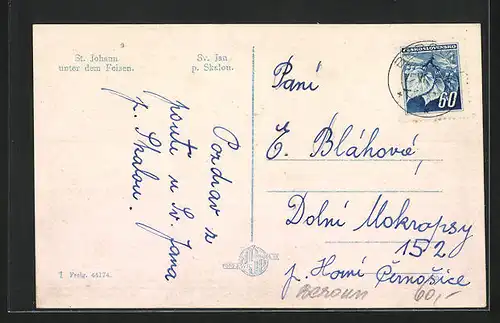 St. Johann
unter dem Felsen.
Sv. Jan
p. Skalou.
ČESKOSLOVENSKO
60
Pozdrav z
pouti u Sv. Jana
p. Skalou.
Paní
E. Bláhová,
Dolní Mokropsy
152
p. Horní Černošice
Beroun
60,-